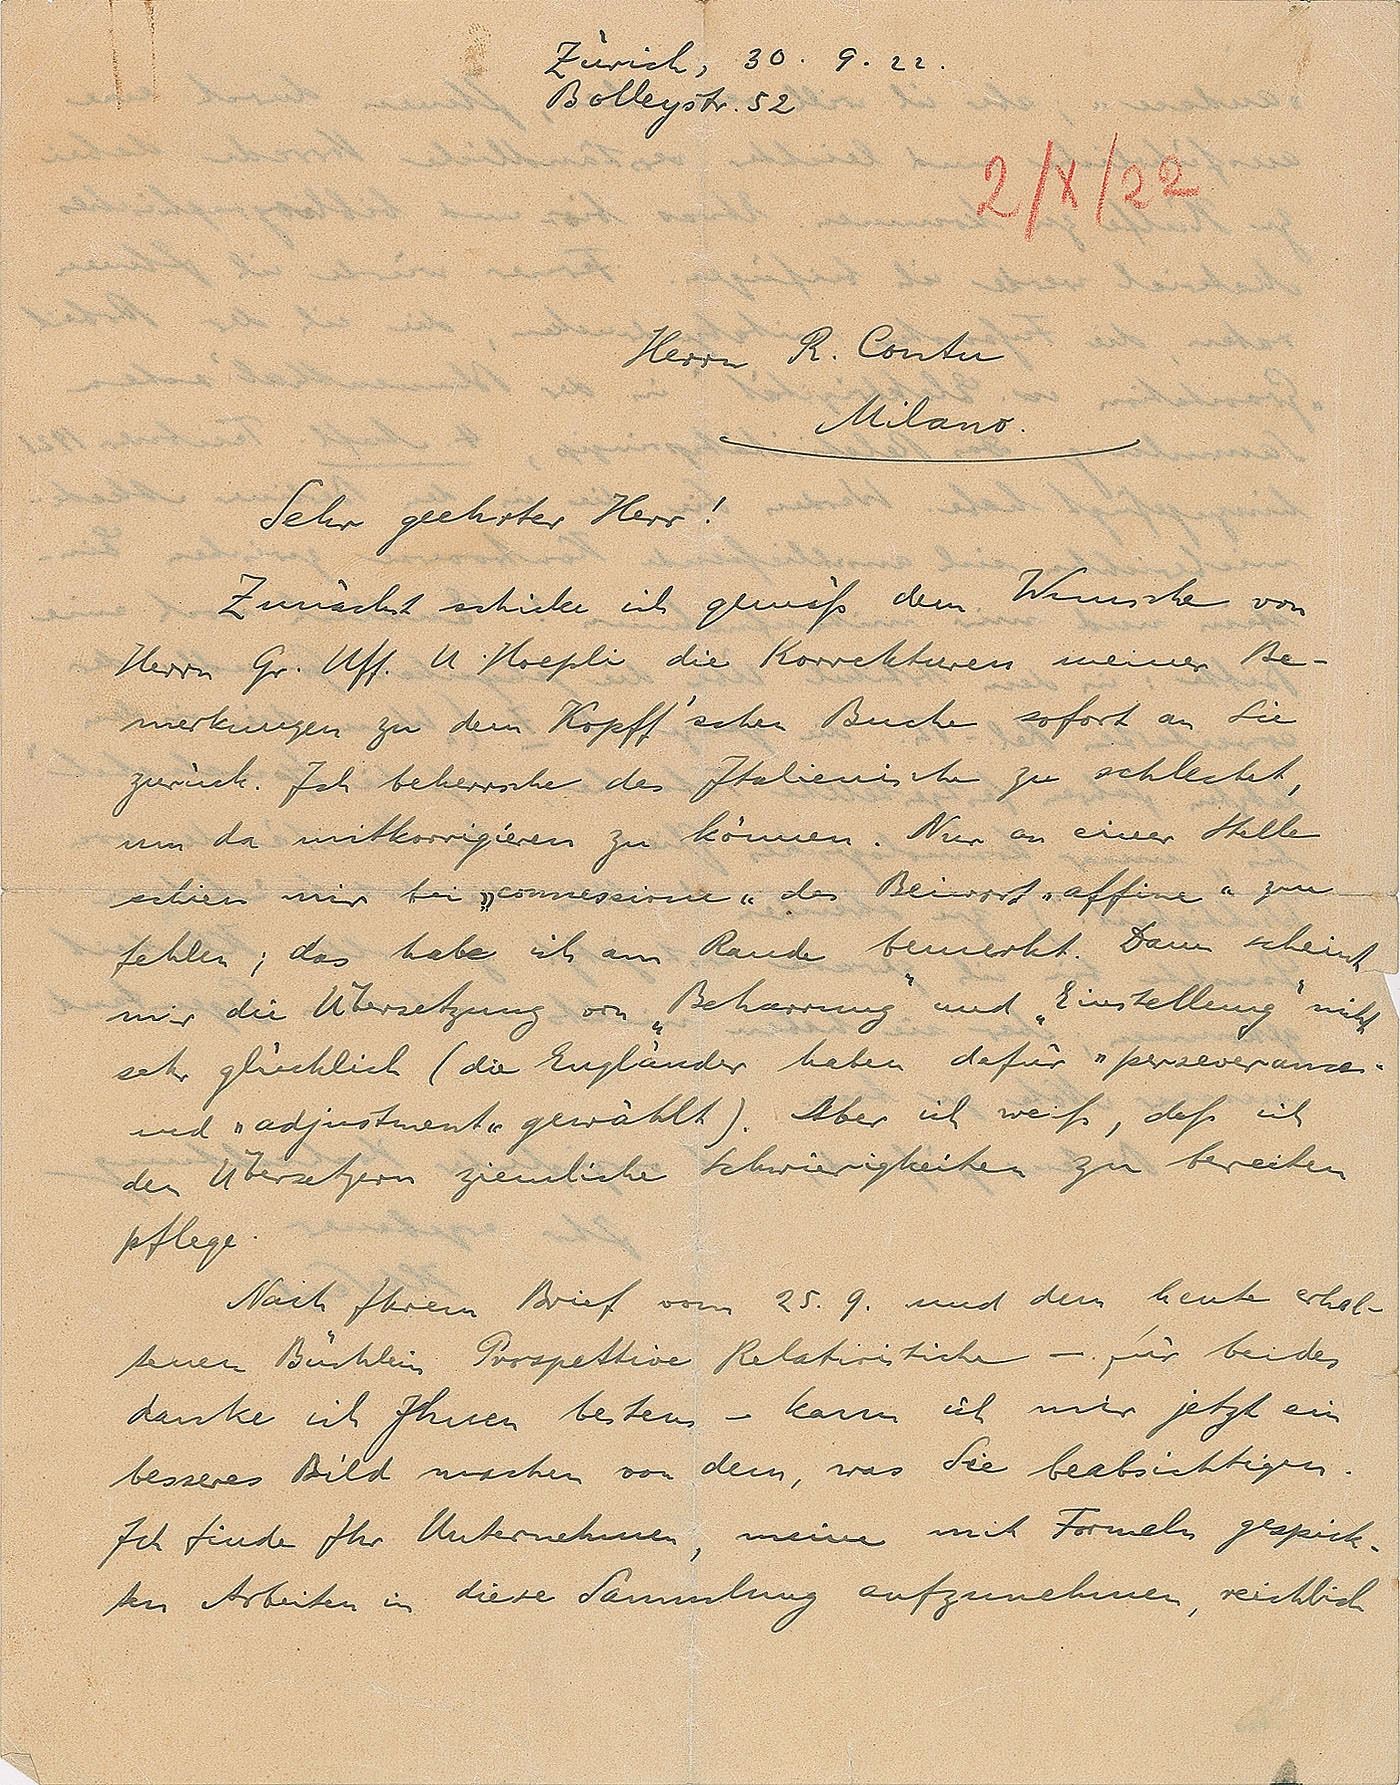 Zürich, 30. 9. 22.
Bolleystr. 52
2/X/22
Herrn R. Contu
Milano.
Sehr geehrter Herr!
Zunächst schicke ich gemäß dem Wunsche von
Herrn Gr. Uff. U. Hoepli die Korrekturen meiner Be-
merkungen zu dem Kopff'schen Buche sofort an Sie
zurück. Ich beherrsche das Italienische zu schlecht,
um da mitkorrigieren zu können. Nur an einer Stelle
schien mir bei „connessione“ das Beiwort „affine“ zu
fehlen; das habe ich am Rande bemerkt. Dann scheint
mir die Übersetzung von „Beharrung“ und „Einstellung“ nicht
sehr glücklich (die Engländer haben dafür „perseverance“
und „adjustment“ gewählt). Aber ich weiß, daß ich
den Übersetzern ziemliche Schwierigkeiten zu bereiten
pflege.
Nach Ihrem Brief vom 25. 9. und dem heute erhal-
tenen Büchlein Prospettive Relativistiche – für beides
danke ich Ihnen bestens – kann ich mir jetzt ein
besseres Bild machen von dem, was Sie beabsichtigen.
Ich finde Ihr Unternehmen, meine mit Formeln gespick-
ten Arbeiten in diese Sammlung aufzunehmen, reichlich